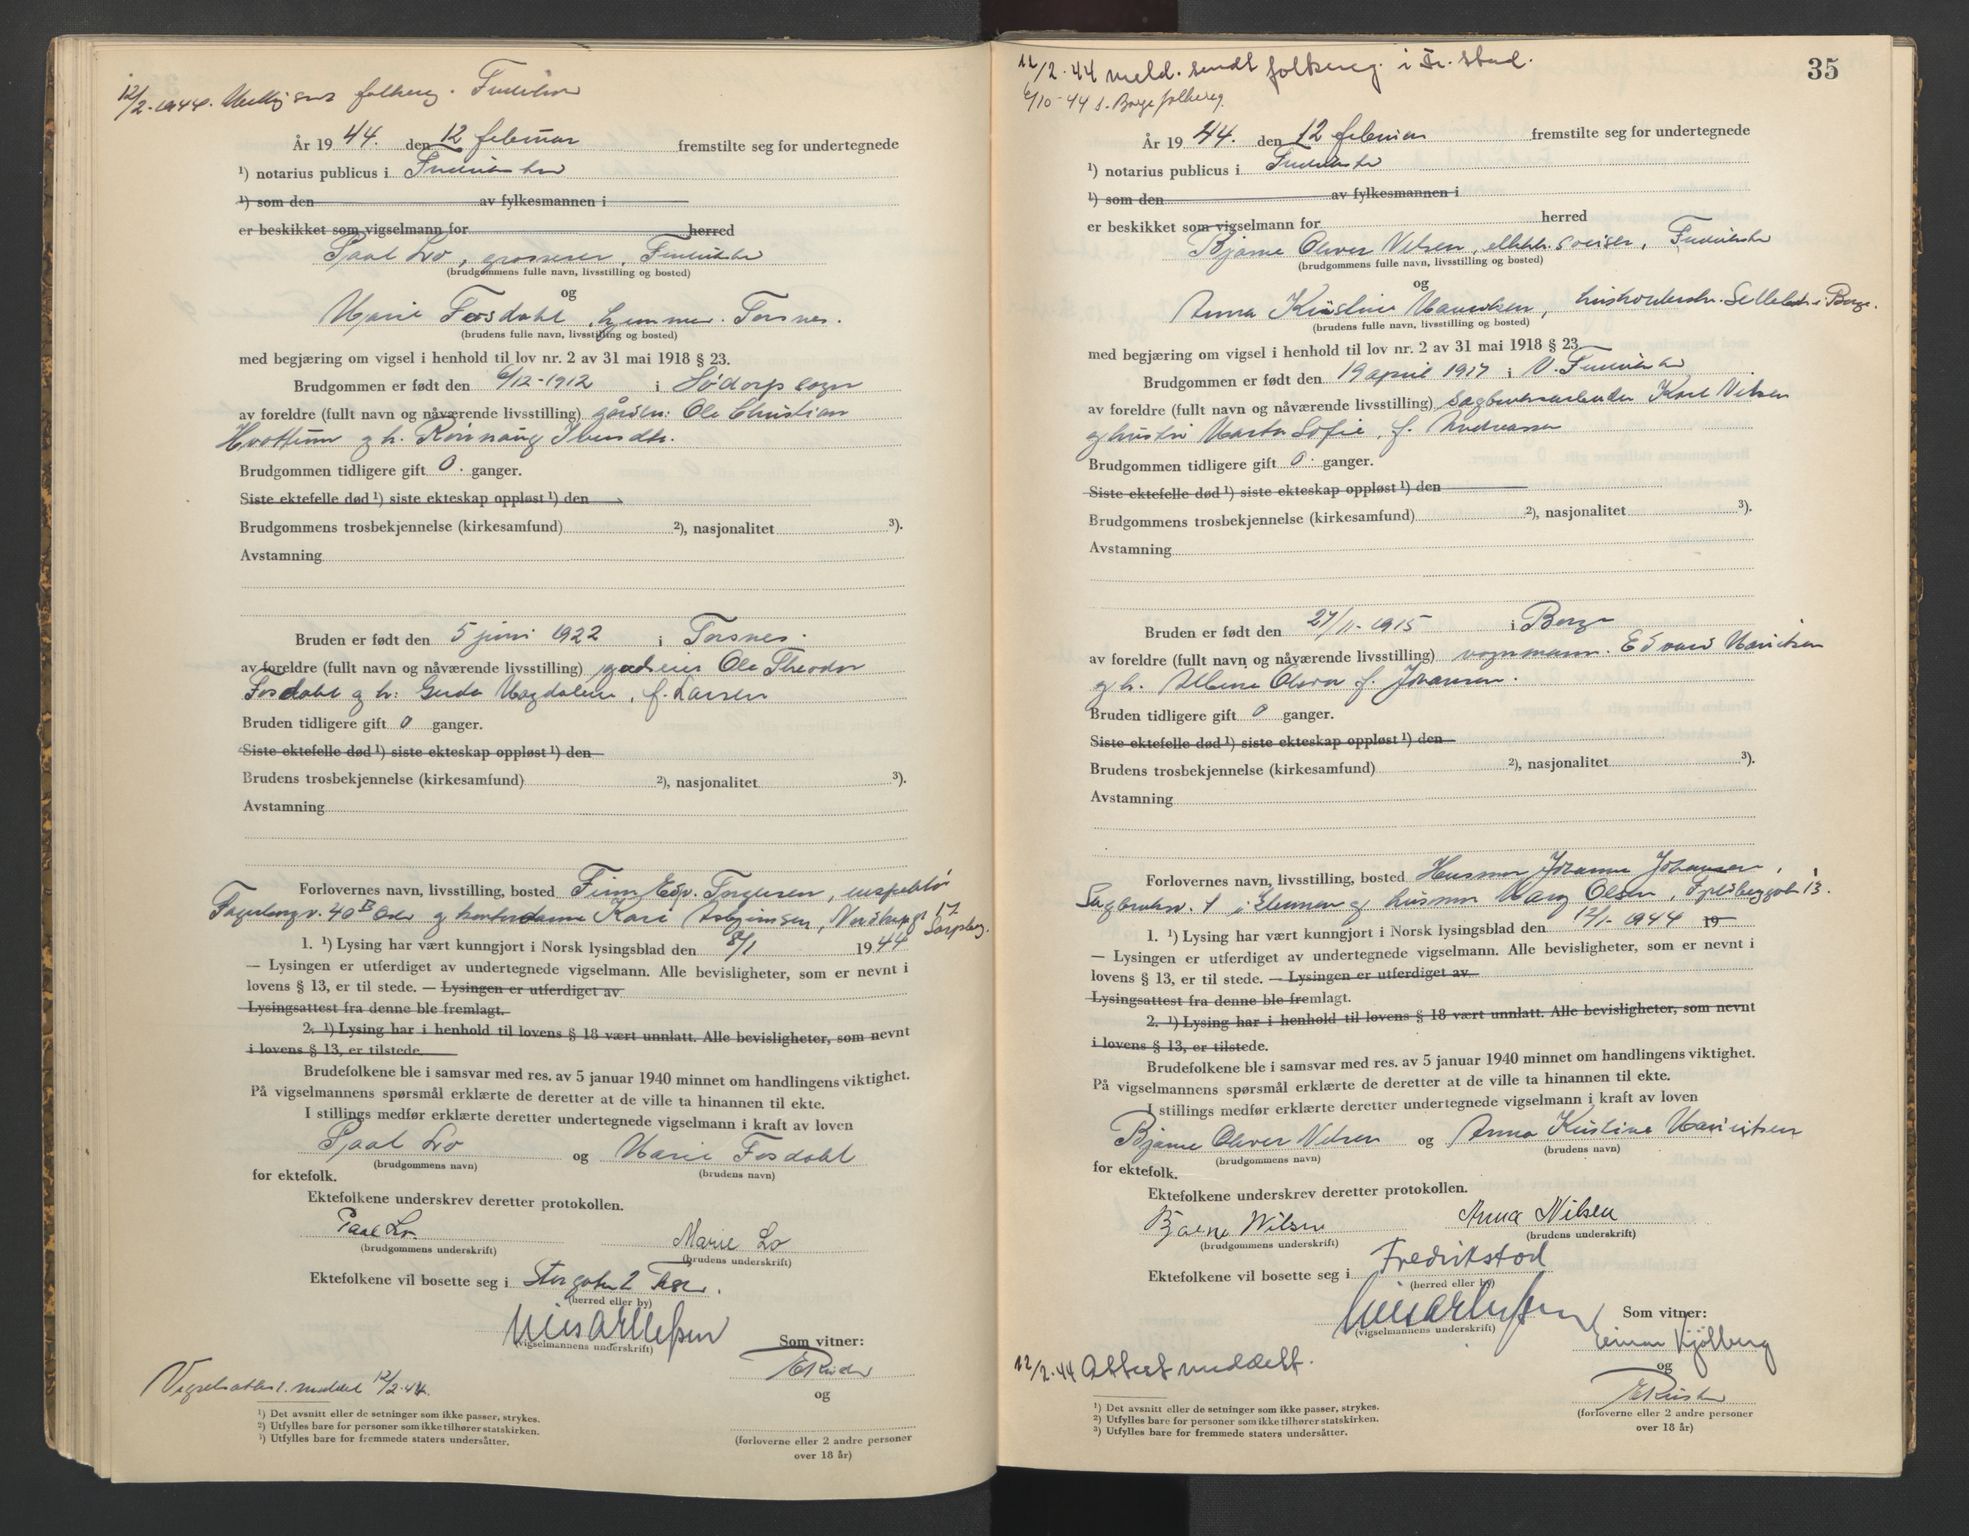 12/2-1944. folkereg. Fredrikstad
År 1944. den 12 februar fremstilte seg for undertegnede
¹) notarius publicus i Fredrikstad
¹) som den av fylkesmannen i
er beskikket som vigselmann for herred
Paal Lo, grosserer, Fredrikstad
(brudgommens fulle navn, livsstilling og bosted)
og
Marie Fosdahl, hjemmev. Torsnes.
(brudens fulle navn, livsstilling og bosted)
med begjæring om vigsel i henhold til lov nr. 2 av 31 mai 1918 § 23.
Brudgommen er født den 6/12-1912 i Sødorp sogn
av foreldre (fullt navn og nåværende livsstilling) gårdbr: Ole Christian
g h.
Brudgommen tidligere gift 0. ganger.
Siste ektefelle død ¹) siste ekteskap oppløst ¹) den
Brudgommens trosbekjennelse (kirkesamfund) ²), nasjonalitet ³).
Avstamning
Bruden er født den 5 juni 1922 i Torsnes.
av foreldre (fullt navn og nåværende livsstilling) gårdeier Ole Theodor
Fosdahl g h: Gerda Magdalene, f. Larsen
Bruden tidligere gift 0 ganger.
Siste ektefelle død ¹) siste ekteskap oppløst ¹) den
Brudens trosbekjennelse (kirkesamfund) ²), nasjonalitet ³).
Avstamning
Forlovernes navn, livsstilling, bosted Finn Torgersen, inspektør
Fagerborgv. 40 B Oslo g kontordame Kari Asbjørnsen, 17 Sarpsborg.
1. ¹) Lysing har vært kunngjort i Norsk lysingsblad den 8/1 1944
— Lysingen er utferdiget av undertegnede vigselmann. Alle bevisligheter, som er nevnt i
lovens § 13, er til stede. — Lysingen er utferdiget av
Lysingsattest fra denne ble fremlagt.
2. ¹) Lysing har i henhold til lovens § 18 vært unnlatt. Alle bevisligheter, som nevnt
i lovens § 13, er tilstede.
Brudefolkene ble i samsvar med res. av 5 januar 1940 minnet om handlingens viktighet.
På vigselmannens spørsmål erklærte de deretter at de ville ta hinannen til ekte.
I stillings medfør erklærte deretter undertegnede vigselmann i kraft av loven
Paal Lo og Marie Fosdahl
(brudgommens navn) (brudens navn)
for ektefolk.
Ektefolkene underskrev deretter protokollen.
Paal Lo Marie Lo
(brudgommens underskrift) (brudens underskrift)
Ektefolkene vil bosette seg i Storgaten 2
(herred eller by)
(vigselmannens underskrift) Som vitner:
og
Vigselsattest meddelt 12/2-44.
¹) Det avsnitt eller de setninger som ikke passer, strykes.
²) Utfylles bare for personer som ikke tilhører statskirken.
³) Utfylles bare for fremmede staters undersåtter.
(forloverne eller 2 andre personer
over 18 år)
35
12/2-44 meld. sendt folkereg. i Fr.stad.
6/10-44 s. Borge folkereg.
År 1944. den 12 februar fremstilte seg for undertegnede
¹) notarius publicus i Fredrikstad
¹) som den av fylkesmannen i
er beskikket som vigselmann for herred
Bjarne Oliver Nilsen, elektr. sveiser, Fredrikstad
(brudgommens fulle navn, livsstilling og bosted)
og
Anna Kristine Mauritsen, Sellebakk i Borge.
(brudens fulle navn, livsstilling og bosted)
med begjæring om vigsel i henhold til lov nr. 2 av 31 mai 1918 § 23
Brudgommen er født den 19 april 1917 i V. Fredrikstad
av foreldre (fullt navn og nåværende livsstilling) sagbruksarbeider Karl Nilsen
g hustru Marta Sofie, f. Andreassen
Brudgommen tidligere gift 0. ganger.
Siste ektefelle død ¹) siste ekteskap oppløst ¹) den
Brudgommens trosbekjennelse (kirkesamfund) ²), nasjonalitet ³).
Avstamning
Bruden er født den 27/11-1915 i Borge
av foreldre (fullt navn og nåværende livsstilling) vognmann. Edvard Mauritsen
g h. Olava f. Johansen.
Bruden tidligere gift 0 ganger.
Siste ektefelle død ¹) siste ekteskap oppløst ¹) den
Brudens trosbekjennelse (kirkesamfund) ²), nasjonalitet ³).
Avstamning
Forlovernes navn, livsstilling, bosted Husmor Johanne Johansen,
Sagbruksv. 1 g husmor Olsen, 13.
1. ¹) Lysing har vært kunngjort i Norsk lysingsblad den 12/1-1944 19
— Lysingen er utferdiget av undertegnede vigselmann. Alle bevisligheter, som er nevnt i
lovens § 13, er til stede. — Lysingen er utferdiget av
Lysingsattest fra denne ble fremlagt.
2. ¹) Lysing har i henhold til lovens § 18 vært unnlatt. Alle bevisligheter, som nevnt
i lovens § 13, er tilstede.
Brudefolkene ble i samsvar med res. av 5 januar 1940 minnet om handlingens viktighet.
På vigselmannens spørsmål erklærte de deretter at de ville ta hinannen til ekte.
I stillings medfør erklærte deretter undertegnede vigselmann i kraft av loven
Bjarne Oliver Nilsen og Anna Kristine Mauritsen
(brudgommens navn) (brudens navn)
for ektefolk.
Ektefolkene underskrev deretter protokollen.
Bjarne Nilsen Anna Nilsen
(brudgommens underskrift) (brudens underskrift)
Ektefolkene vil bosette seg i Fredrikstad
(herred eller by)
(vigselmannens underskrift) Som vitner:
Einar Kjølberg
og
12/2-44 Attest meddelt.
¹) Det avsnitt eller de setninger som ikke passer, strykes.
²) Utfylles bare for personer som ikke tilhører statskirken.
³) Utfylles bare for fremmede staters undersåtter.
(forloverne eller 2 andre personer
over 18 år)